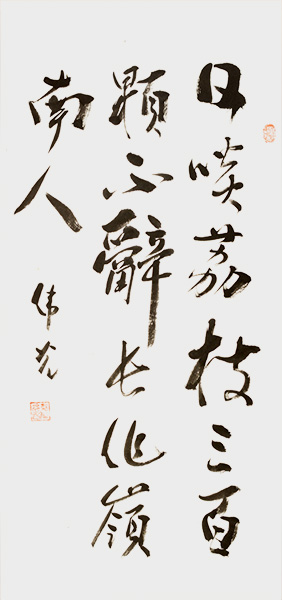 日啖荔枝三百
顆不辭长作嶺
南人
伟光